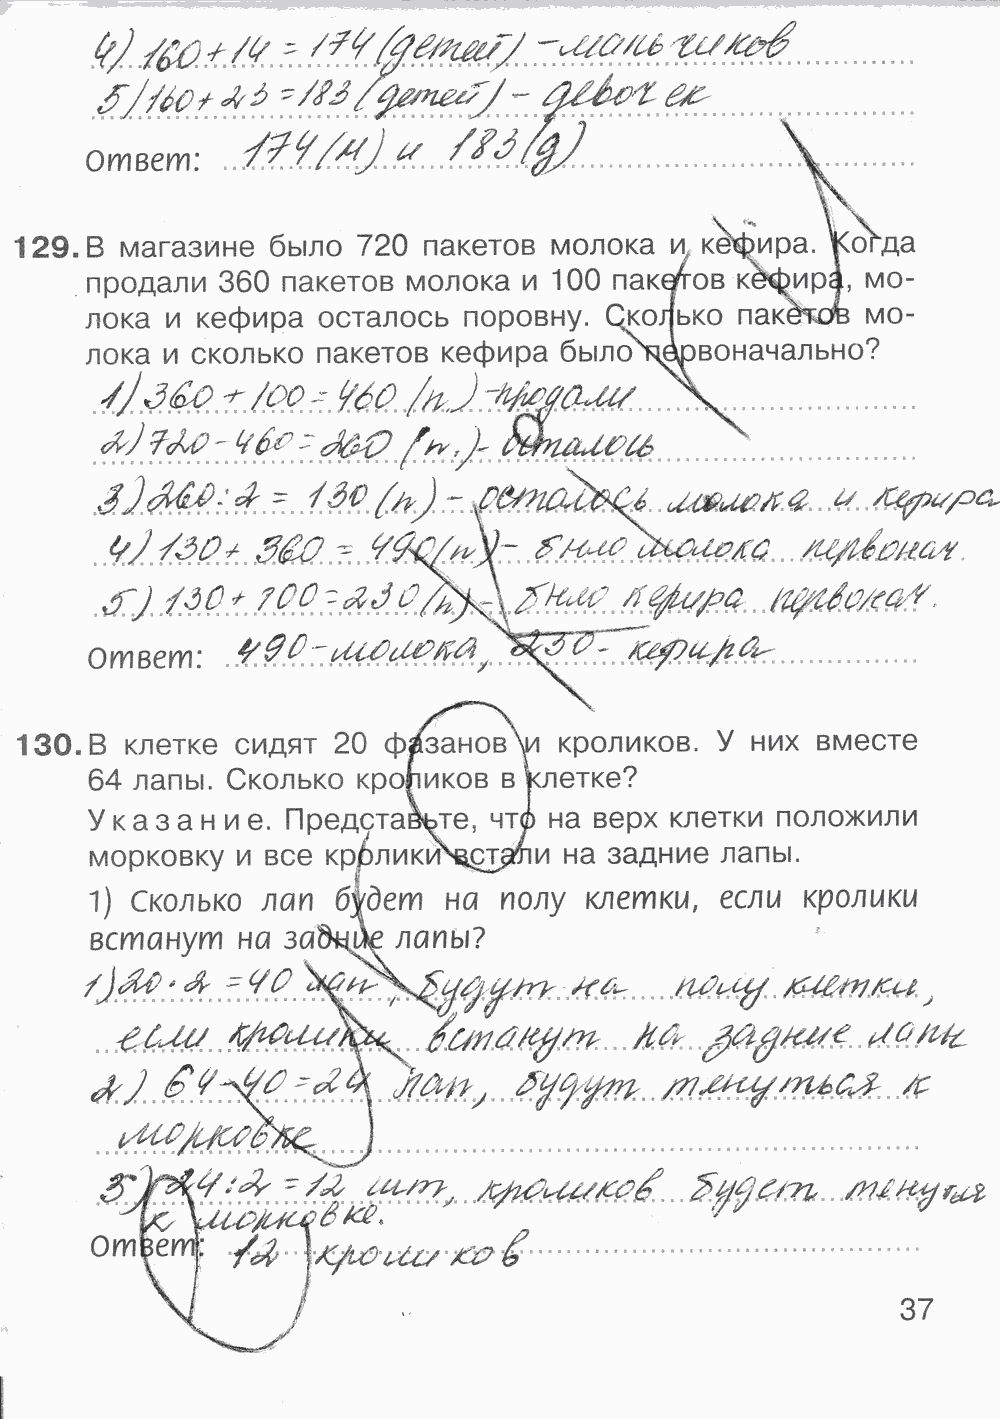 4) 160 + 14 = 174 (детей) - мальчиков
5) 160 + 23 = 183 (детей) - девочек
Ответ: 174 (м) и 183 (д)
129. В магазине было 720 пакетов молока и кефира. Когда
продали 360 пакетов молока и 100 пакетов кефира, мо-
лока и кефира осталось поровну. Сколько пакетов мо-
лока и сколько пакетов кефира было первоначально?
1) 360 + 100 = 460 (п.) - продали
2) 720 - 460 = 260 (п.) - осталось
3) 260 : 2 = 130 (п) - осталось молока и кефира
4) 130 + 360 = 490 (п) - было молока первонач.
5) 130 + 100 = 230 (п) - было кефира первонач.
Ответ: 490 - молока, 230 - кефира
130. В клетке сидят 20 фазанов и кроликов. У них вместе
64 лапы. Сколько кроликов в клетке?
Указание. Представьте, что на верх клетки положили
морковку и все кролики встали на задние лапы.
1) Сколько лап будет на полу клетки, если кролики
встанут на задние лапы?
1) 20 · 2 = 40 лап, будут на полу клетки,
если кролики встанут на задние лапы
2) 64 - 40 = 24 лап, будут тянуться к
морковке
3) 24 : 2 = 12 шт, кроликов будет тянутся
к морковке.
Ответ: 12 кроликов
37